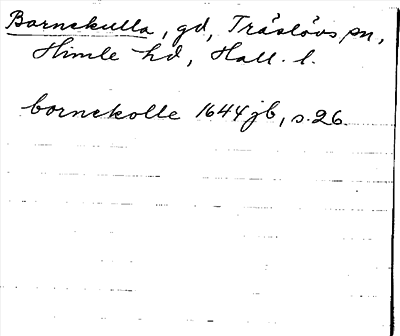 Barnekulla, gd, Träslövs sn,
Himle hd, Hall. l.
barnekolle 1644 jb, s. 26.